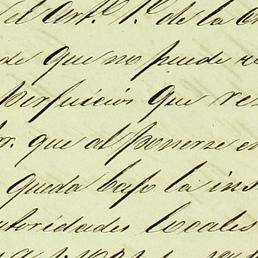 el Artº. 1º. de la
de que no puede re
perjuicios que res
or. que al ponerse en
queda bajo la ins
utoridades locales